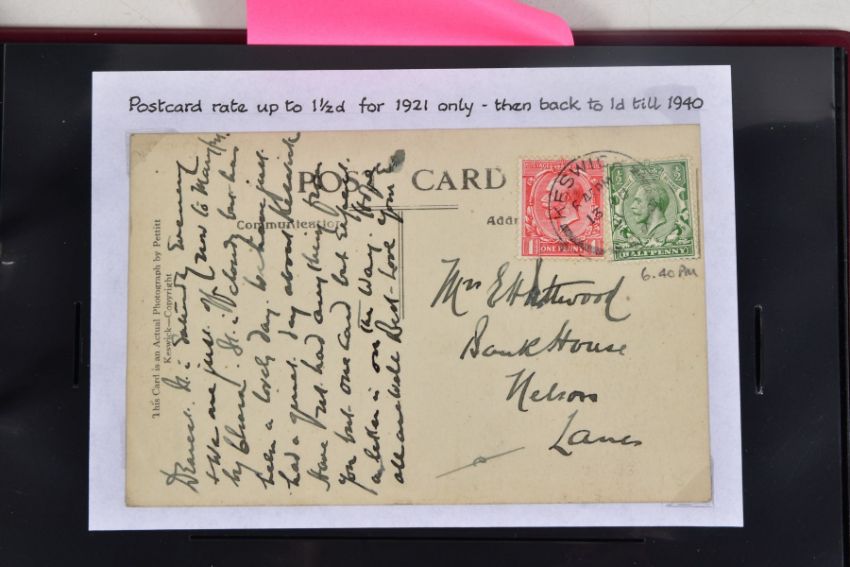 Postcard rate up to 1½d for 1921 only - then back to 1d till 1940
POST CARD
Communication
Addr
This Card is an Actual Photograph by Pettitt
Keswick—Copyright
POSTAGE
1 ONE PENNY
HALFPENNY
KESWICK
6.40 PM
Mrs E
Bank House
Nelson
Lancs
Dearest. It is Saturday Evening
& we are just off now to
by Chara. It is cloudy but has
been a lovely day. We have just
had a jaunt about Keswick
Have not had anything from
you but one card but expect
a letter is on the way. Hope
all are well Best Love your